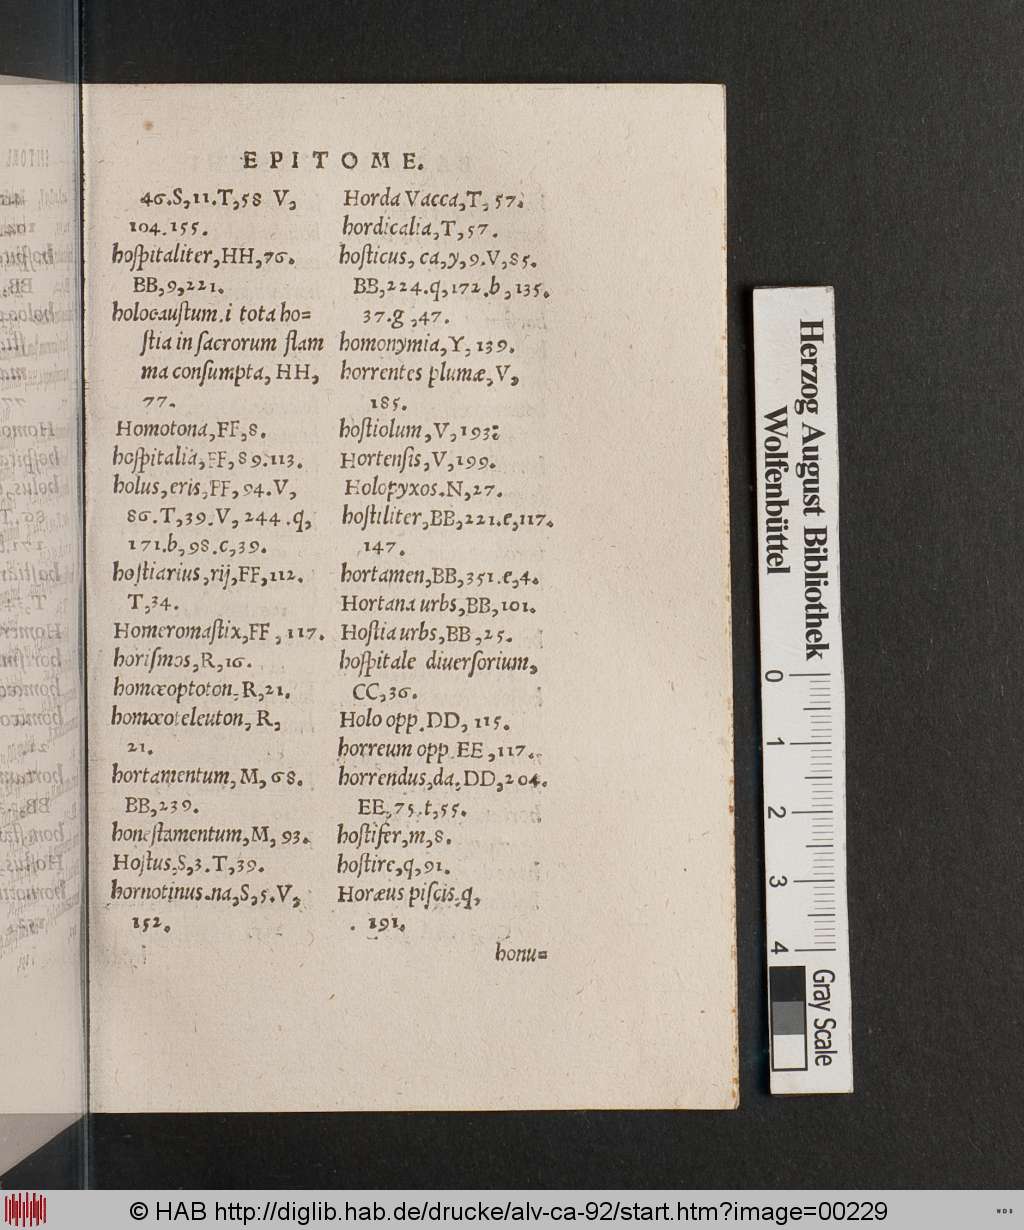 EPITOME.
46.S,11.T,58 V,
104.155.
hoſpitaliter,HH,76.
BB,9,221.
holocauſtum.i tota ho=
ſtia in ſacrorum flam
ma conſumpta, HH,
77.
Homotona,FF,8.
hoſpitalia,FF,89.113.
holus,eris,FF,94.V,
86.T,39.V,244.q,
171.b,98.c,39.
hoſtiarius,rij,FF,112.
T,34.
Homeromaſtix,FF,117.
horiſmos,R,16.
homœoptoton,R,21.
homœoteleuton, R,
21.
hortamentum, M, 68.
BB,239.
honeſtamentum,M, 93.
Hoſtus.S,3.T,39.
hornotinus.na,S,5.V,
152.
Horda Vacca,T, 57.
hordicalia,T,57.
hoſticus, ca,y,9.V,85.
BB,224.q,172.b,135.
37.g,47.
homonymia,Y, 139.
horrentes plumæ,V,
185.
hoſtiolum,V,193:
Hortenſis,V,199.
Holopyxos.N,27.
hoſtiliter,BB,221.e,117.
147.
hortamen,BB,351.e,4.
Hortana urbs,BB,101.
Hoſtia urbs,BB,25.
hoſpitale diuerſorium,
CC,36.
Holo opp.DD, 115.
horreum opp.EE,117.
horrendus,da,DD,204.
EE,75.t,55.
hoſtifer,m,8.
hoſtire,q,91.
Horæus piſcis.q,
191.
honu=
Herzog August Bibliothek
Wolfenbüttel
0 1 2 3 4
Gray Scale
© HAB http://diglib.hab.de/drucke/alv-ca-92/start.htm?image=00229